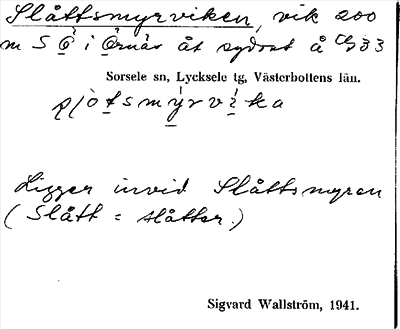 Slåttsmyrviken, vik 200
m S Ö i Örnäs åt sydost å
Sorsele sn, Lycksele tg, Västerbottens län.
Ligger invid Slåttsmyren
(Slått = slåtter.)
Sigvard Wallström, 1941.